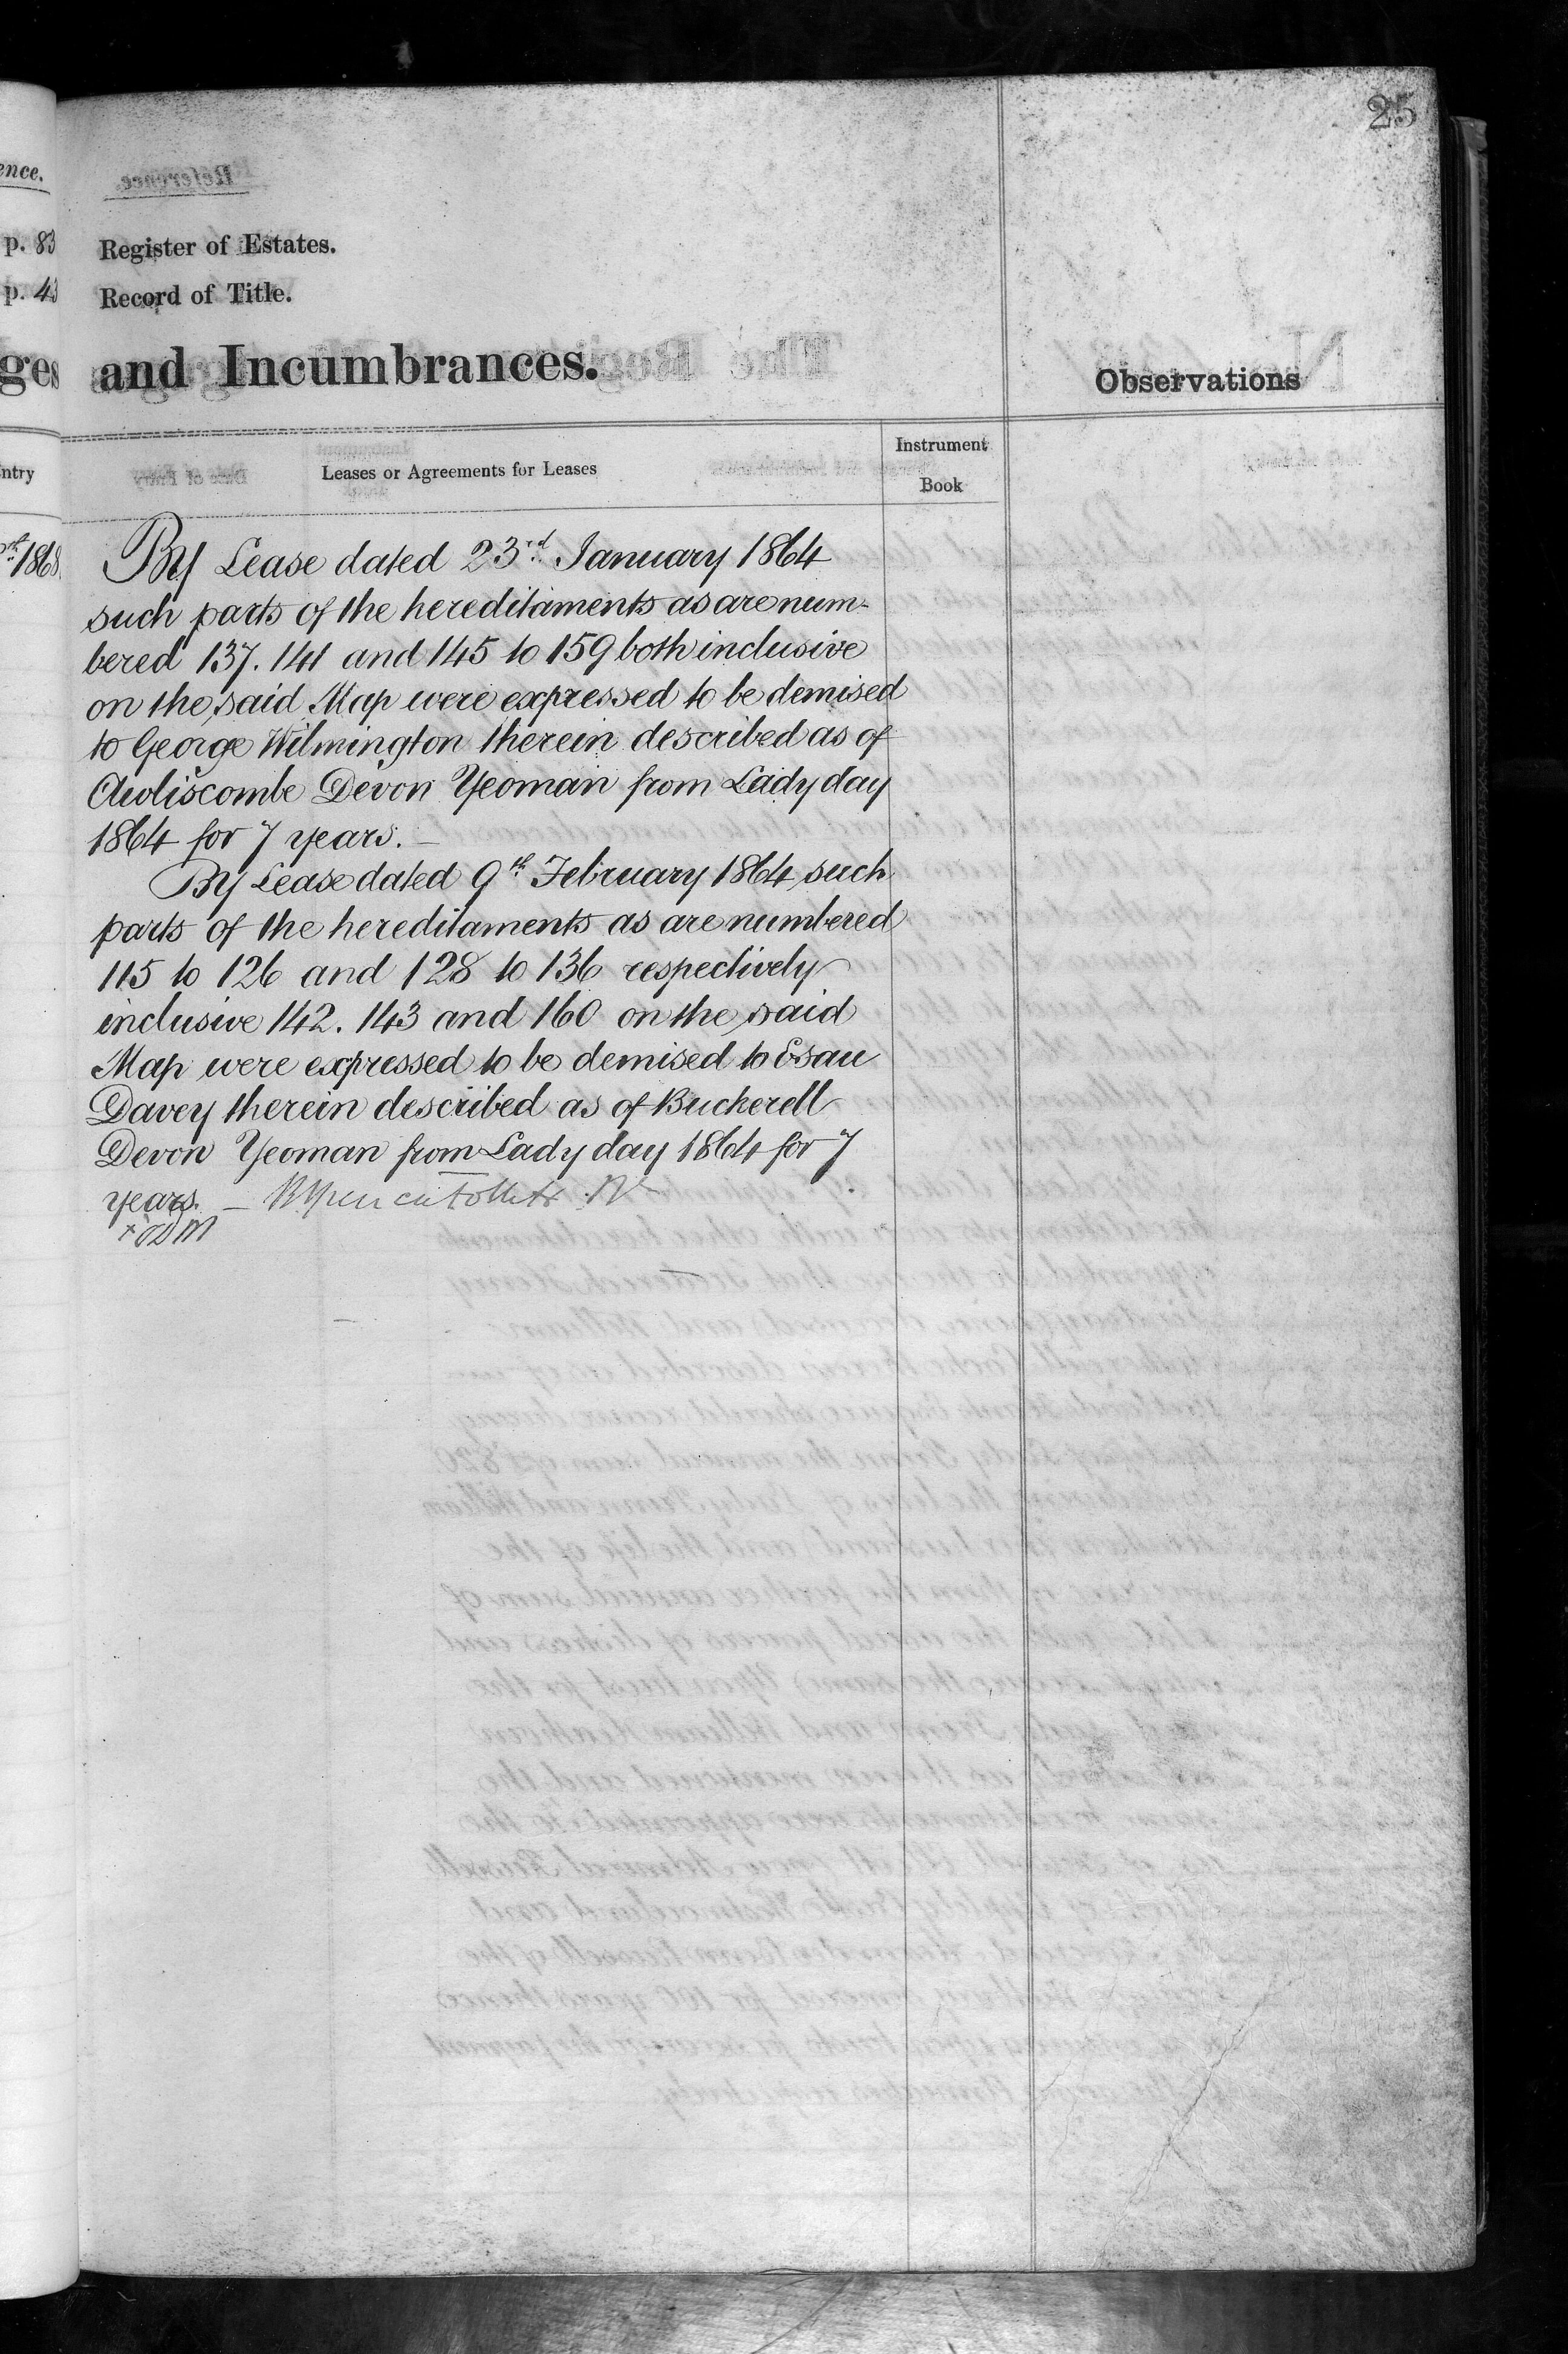 25
ence.
p. 83
p. 43
ges
ntry
1868
Register of Estates.
Record of Title.
and Incumbrances.
Observations
Leases or Agreements for Leases
Instrument
Book
By Lease dated 23rd January 1864
such parts of the hereditaments as are num-
bered 137. 141 and 145 to 159 both inclusive
on the said Map were expressed to be demised
to George Wilmington therein described as of
Awliscombe Devon Yeoman from Lady day
1864 for 7 years. —
By Lease dated 9th February 1864 such
parts of the hereditaments as are numbered
115 to 126 and 128 to 136 respectively
inclusive 142. 143 and 160 on the said
Map were expressed to be demised to Esau
Davey therein described as of Buckerell
Devon Yeoman from Lady day 1864 for 7
years. —